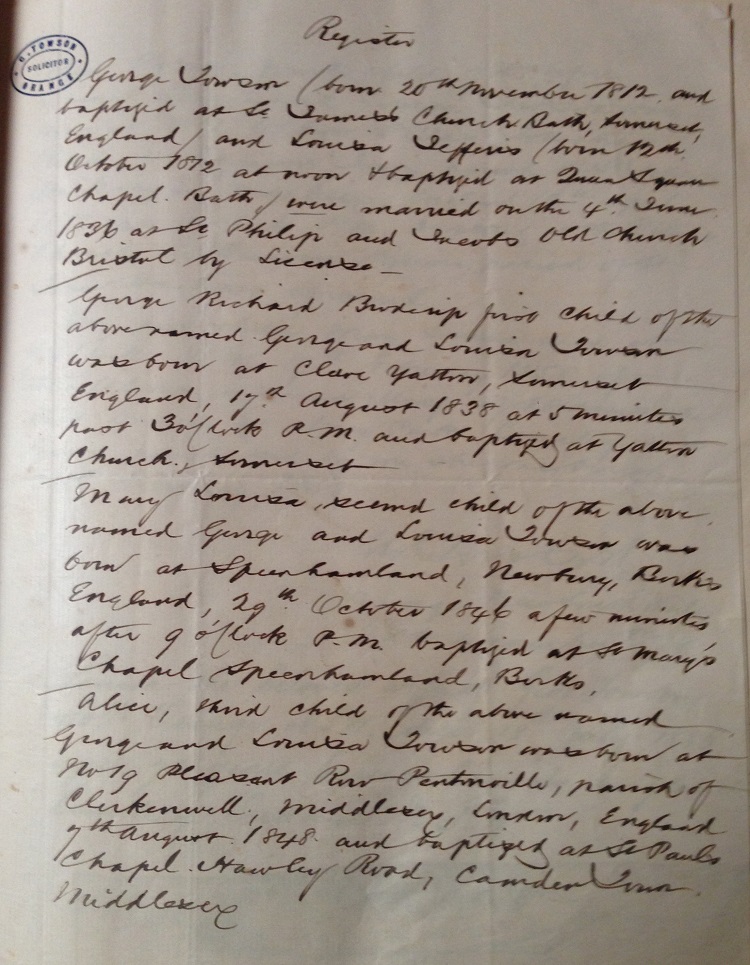 Register
G. TOWSON
SOLICITOR
ORANGE
George Towson (born 20th November 1812 and
baptized at St James's Church Bath, Somerset,
England) and Louisa Jefferis (born 12th
October 1812 at noon & baptized at Queen Square
Chapel. Bath) were married on the 4th June
1836 at St Philip and Jacobs Old Church
Bristol by License —
George Richard Broderip first child of the
above named George and Louisa Towson
was born at Cleve Yatton, Somerset
England, 17th August 1838 at 5 minutes
past 3 o'Clock P.M. and baptized at Yatton
Church, Somerset
Mary Louisa, second child of the above
named George and Louisa Towson was
born at Speenhamland, Newbury, Berks
England, 29th October 1846 a few minutes
after 9 o'Clock P.M. baptized at St Mary's
Chapel Speenhamland, Berks,
Alice, third child of the above named
George and Louisa Towson was born at
No 19 Pleasant Row Pentonville, parish of
Clerkenwell, Middlesex, London, England
7th August 1848 and baptized at St Pauls
Chapel. Hawley Road, Camden Town.
Middlesex